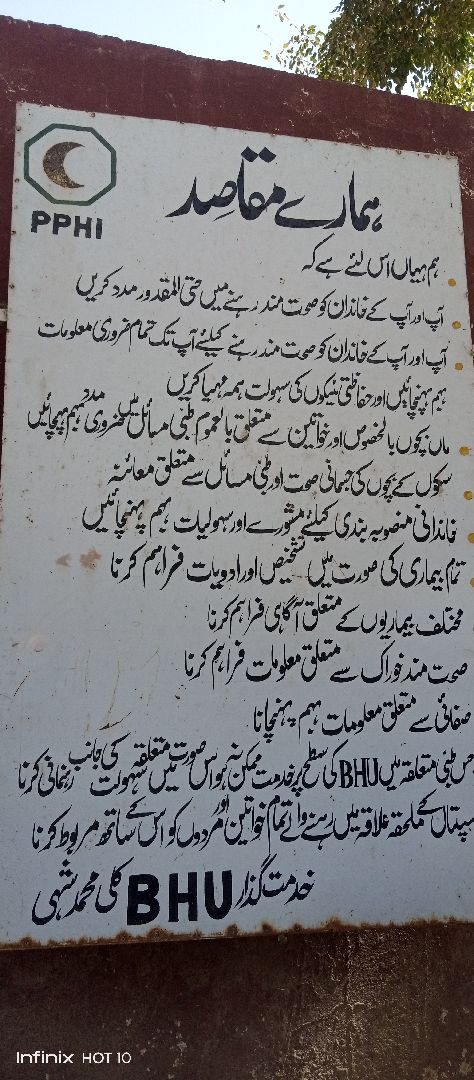 PPHI
ہمارے مقاصد
ہم یہاں اس لئے ہے کہ
آپ اور آپ کے خاندان کو صحت مند رہنے میں حتی المقدور مدد کریں
آپ اور آپ کے خاندان کو صحت مند رہنے کیلئے آپ تک تمام ضروری معلومات
بہم پہنچائیں اور حفاظتی ٹیکوں کی سہولت بہم مہیا کریں
ماں بچوں بالخصوص اور خواتین سے متعلق بالعموم طبی مسائل میں ضروری مدد بہم پہنچائیں
سکول کے بچوں کی جسمانی صحت اور طبی مسائل سے متعلق معائنہ
خاندانی منصوبہ بندی کیلئے مشورے اور سہولیات بہم پہنچائیں
تمام بیماری کی صورت میں تشخیص اور ادویات فراہم کرنا
مختلف بیماریوں کے متعلق آگاہی فراہم کرنا
صحت مند خوراک سے متعلق معلومات فراہم کرنا
صفائی سے متعلق معلومات بہم پہنچانا
جس طبی متعلقہ میں BHU کی سطح پر خدمت ممکن نہ ہو اس صورت میں متعلقہ سہولت کی جانب رہنمائی کرنا
ہسپتال کے ملحقہ علاقہ میں رہنے والے تمام خواتین اور مردوں کو اس کے ساتھ مربوط کرنا
خدمت گذار BHU کلی محمد شہی
Infinix HOT 10